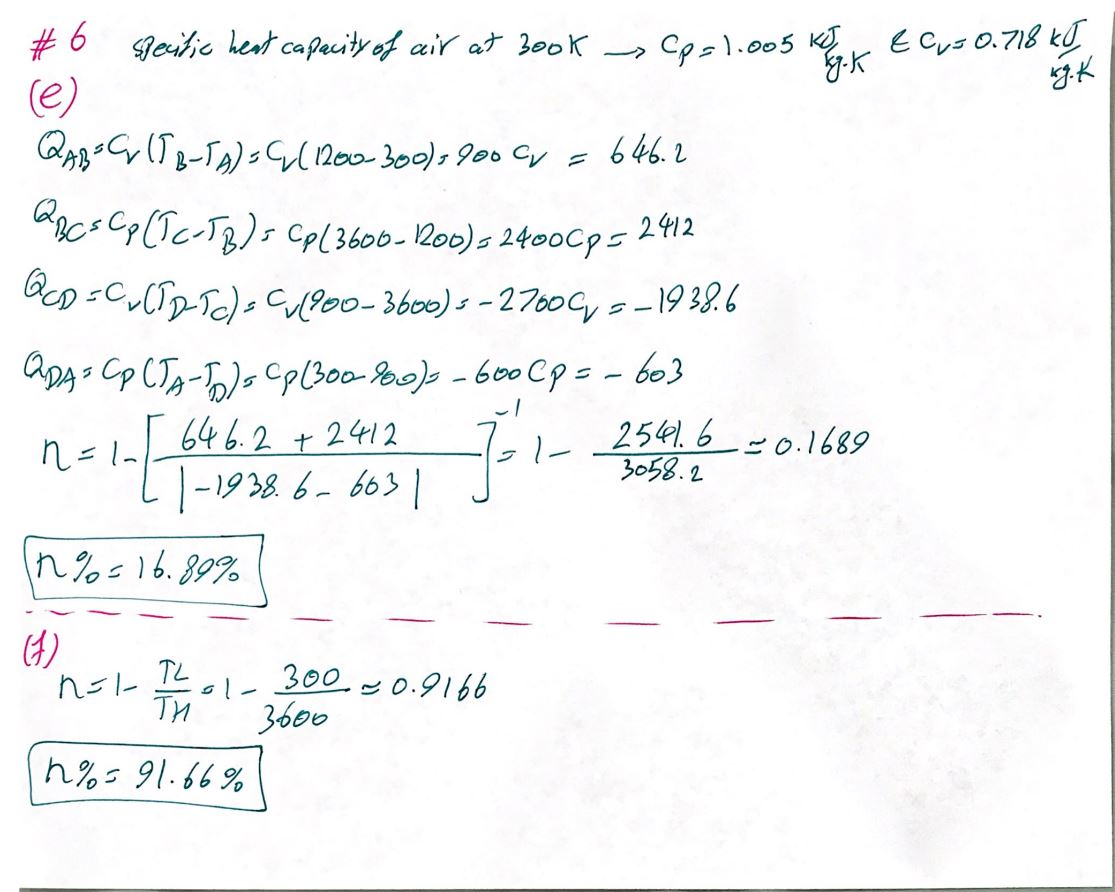 #6 specific heat capacity of air at 300K → Cp=1.005 kJ/kg.K & Cv=0.718 kJ/kg.K
(e)
QAB=Cv(TB-TA)=Cv(1200-300)=900 Cv = 646.2
QBC=Cp(TC-TB)=Cp(3600-1200)=2400Cp=2412
QCD=Cv(TD-TC)=Cv(900-3600)=-2700Cv=-1938.6
QDA=Cp(TA-TD)=Cp(300-900)=-600Cp=-603
n=1-[646.2+2412/|-1938.6-603|]^-1=1-2541.6/3058.2≈0.1689
n%=16.89%
(f)
n=1-TL/TH=1-300/3600≈0.9166
n%=91.66%